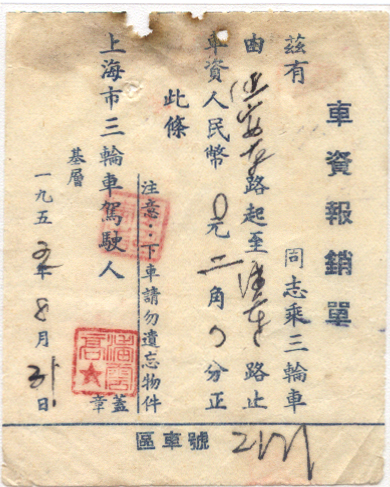 車資報銷單
茲有 同志乘三輪車
由延安东路起至 路止
車資人民幣0元二角0分正
此條
注意：下車請勿遺忘物件
上海市三輪車駕駛人
基層 蓋章
一九五五年8月31日
區車號